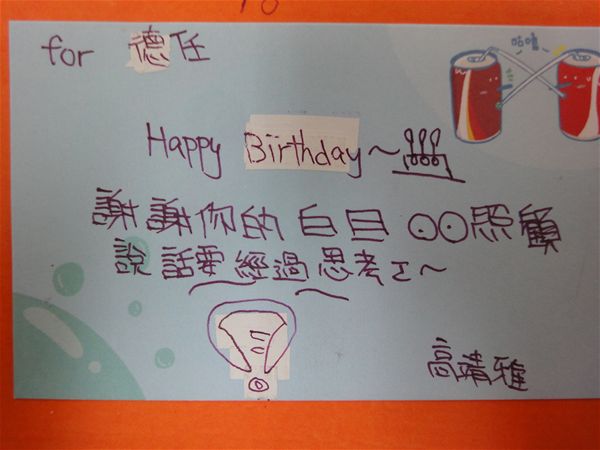 for 德任
Happy Birthday~
謝謝你的白目⊙⊙照顧
說話要經過思考ㄛ~
高靖雅